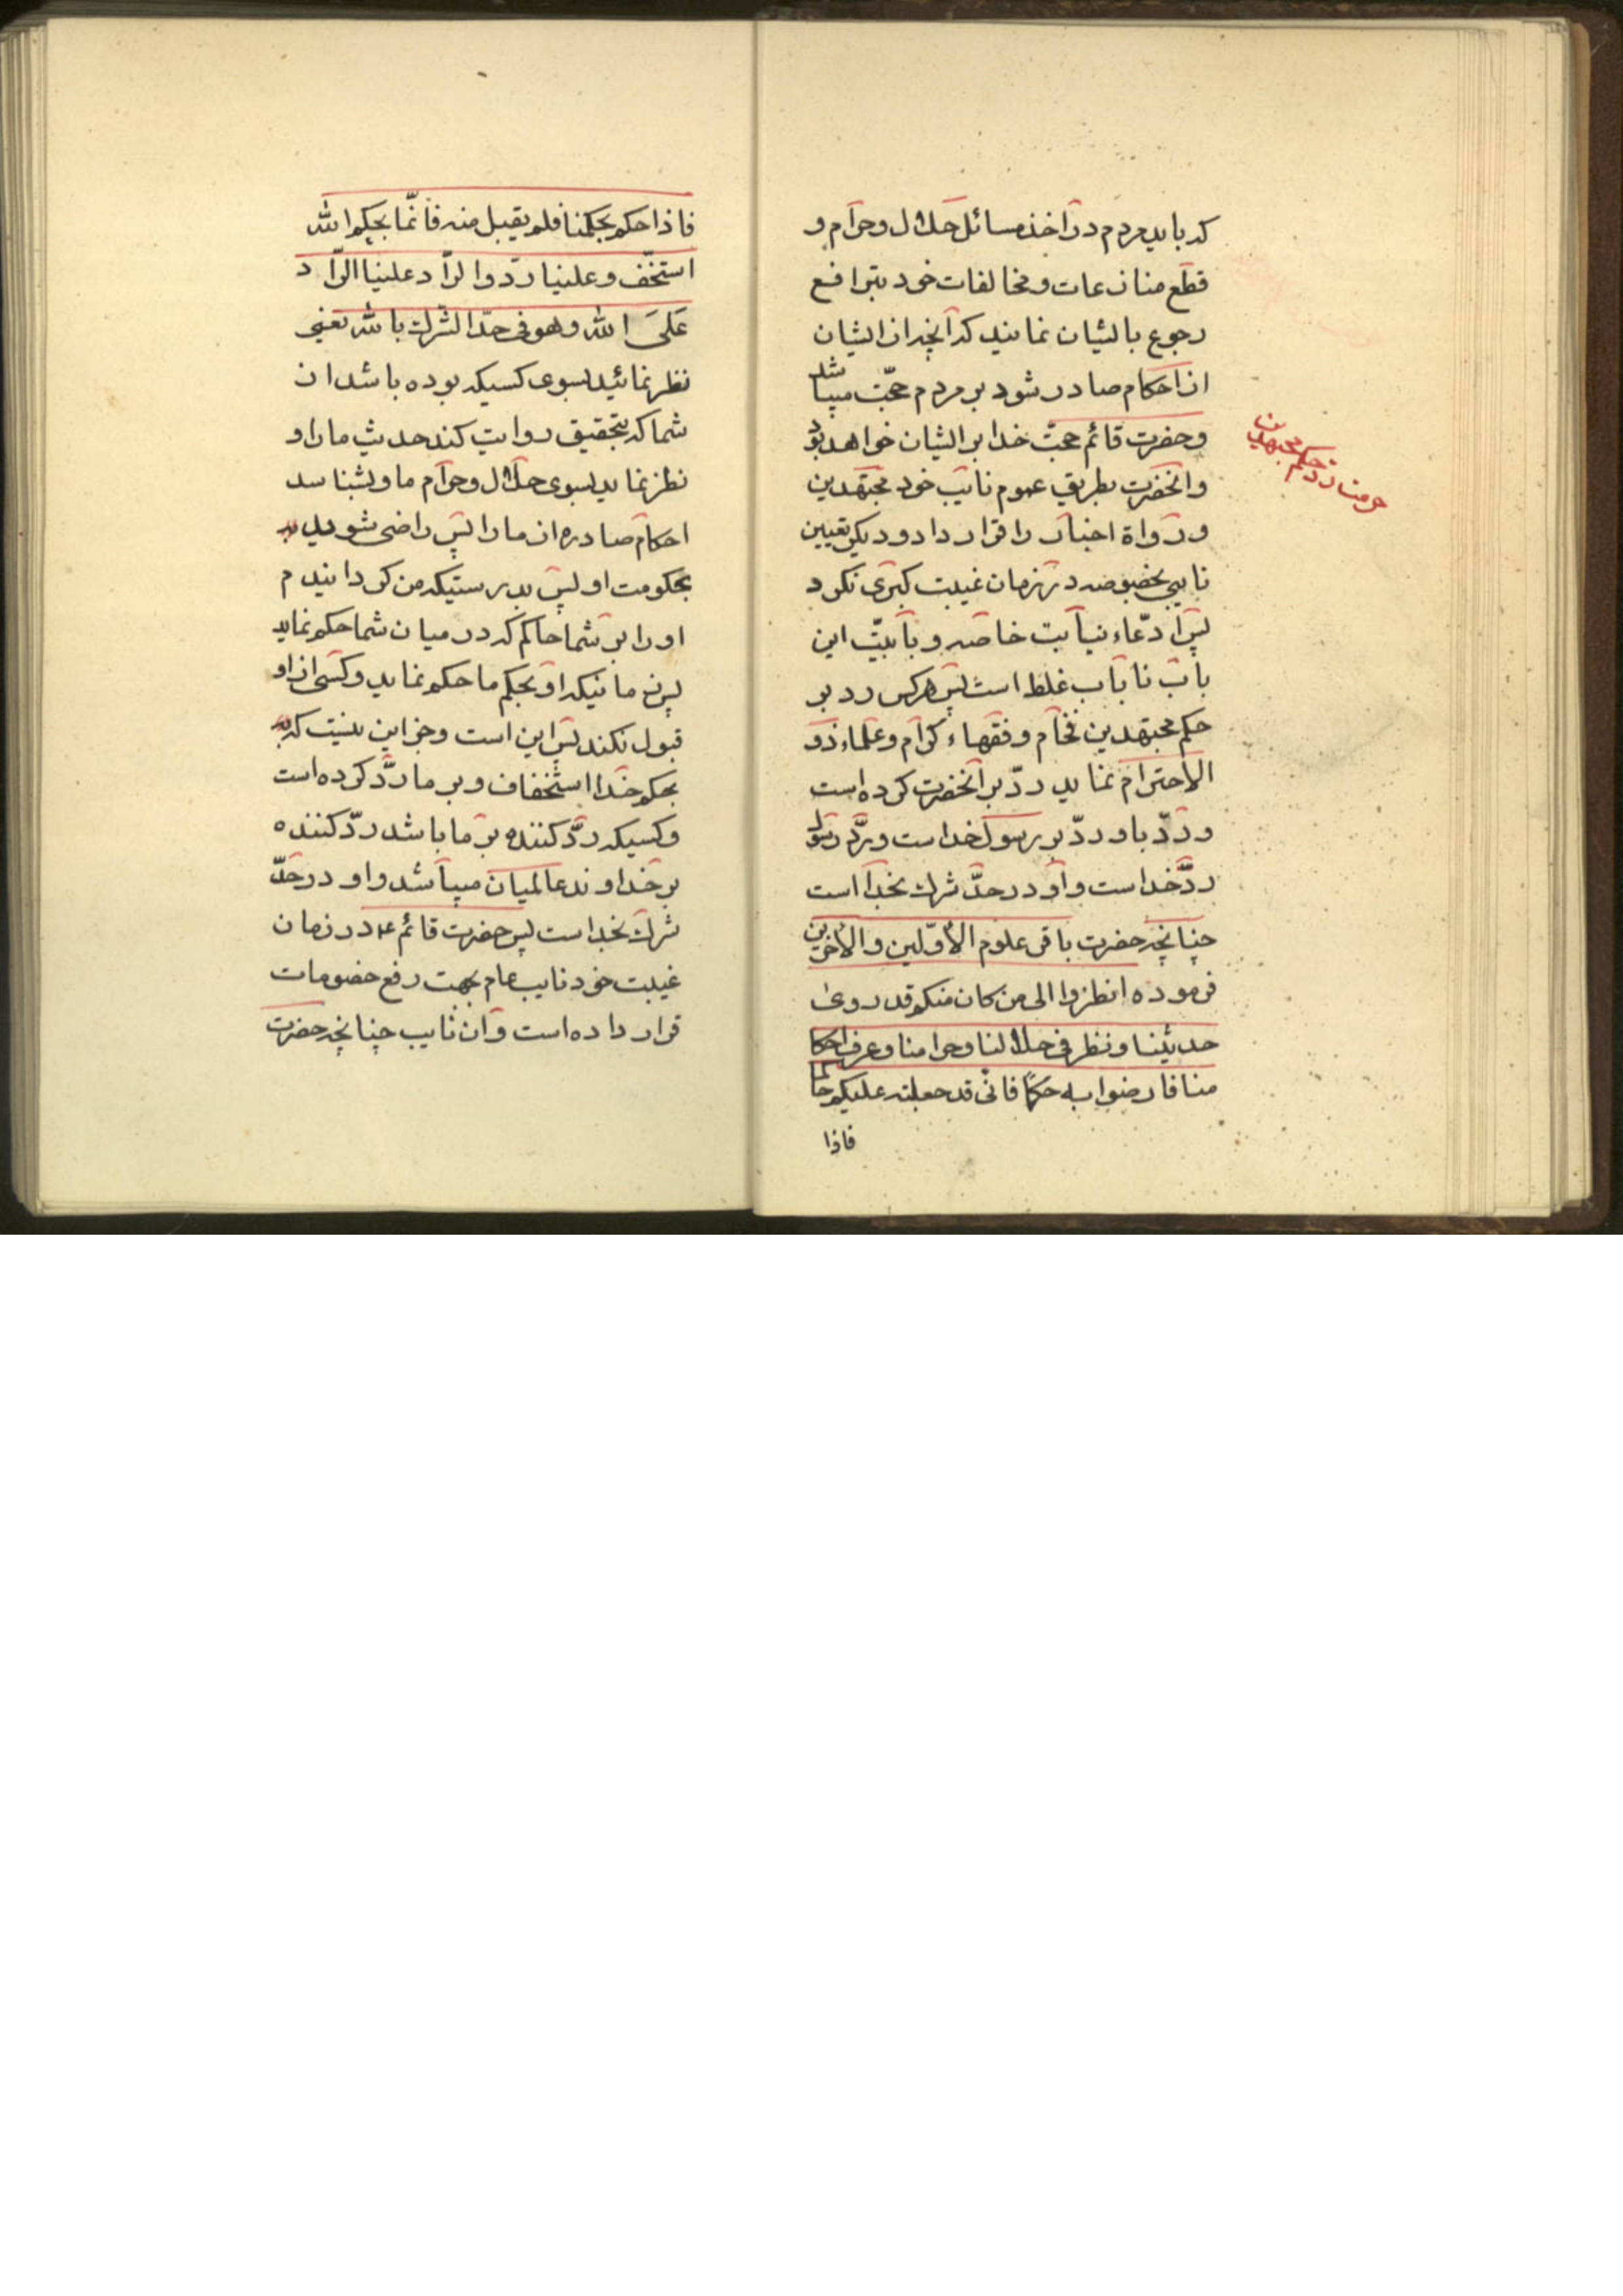 که باید مردم در اخذ مسائل حلال و حرام و
قطع منازعات و مخالفات خود بترافع
رجوع بایشان نمایند که آنچه از ایشان
از احکام صادر شود بر مردم حجّت میباشد
و حضرت قائم حجت خدا بر ایشان خواهد بود
و انحضرت بطریق عموم نایب خود مجتهدین
و رواة اخبار را قرار داد و دیگر تعیین
نایبی بخصوصه در زمان غیبت کبری نکرد
پس ادّعاء نیابت خاصه و بابیّت این
باب نا باب غلط است پس هرکس رد بر
حکم مجتهدین فخام و فقهاء کرام و علماء ذو
الاحترام نماید ردّ بر انحضرت کرده است
و ردّ باو ردّ بر رسول خداست و ردّ رسول
ردّ خداست و او در حدّ شرك بخدا است
چنانچه حضرت باقر علوم الاوّلین و الاخرین
فرموده انظروا الی من کان منکم قد روی
حدیثنا و نظر فی حلالنا و حرامنا و عرف احکا
منا فارضوا به حکمًا فانّی قد جعلته علیکم حاکما
فاذا
حرمت ردّ حکم مجتهدین
فاذا حکم بحکمنا فلم یقبل منه فانّما بحکم الله
استخّف و علینا ردّ و الرّاد علینا الرّاد
عَلیَ الله و هو فی حدّ الشرك بالله یعنی
نظر نمائید بسوی کسیکه بوده باشد از
شما که بتحقیق روایت کند حدیث ما را و
نظر نماید بسوی حلال و حرام ما و بشناسد
احکام صادره از ما را پس راضی شوید به
بحکومت او پس بدرستیکه من گردانیدم
او را بر شما حاکم که در میان شما حکم نماید
پس زمانیکه او بحکم ما حکم نماید و کسی از او
قبول نکند پس این است و جز این نیست که به
بحکم خدا استخفاف و بر ما ردّ کرده است
و کسیکه ردّ کننده بر ما باشد ردّ کننده
بر خداوند عالمیان میباشد و او در حدّ
شرك بخداست پس حضرت قائم ع در زمان
غیبت خود نایب عام بجهت رفع خصومات
قرار داده است و آن نایب چنانچه حضرت